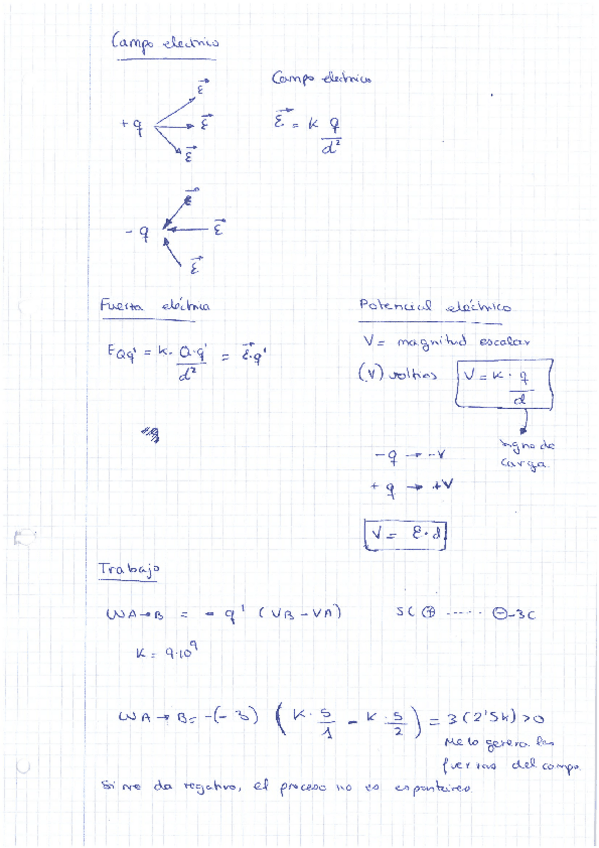 Campo electrico
Campo electrico
+q
ε⃗
ε⃗
ε⃗
ε⃗ = K q/d²
-q
ε⃗
ε⃗
ε⃗
Fuerza eléctrica
FQq' = K. Q.q'/d² = ε⃗.q'
Potencial eléctrico
V= magnitud escalar
(V) voltios
V = K . q/d
signo de
carga.
-q → -V
+q → +V
V = ε.d
Trabajo
WA→B = - q' (VB-VA)
5C ⊕ ..... ⊖-3C
K = 9.10⁹
WA→B= -(-3) (K. 5/1 - K. 5/2) = 3(2'5K) >0
Me lo genera las
fuerzas del campo.
Si me da negativo, el proceso no es espontáneo